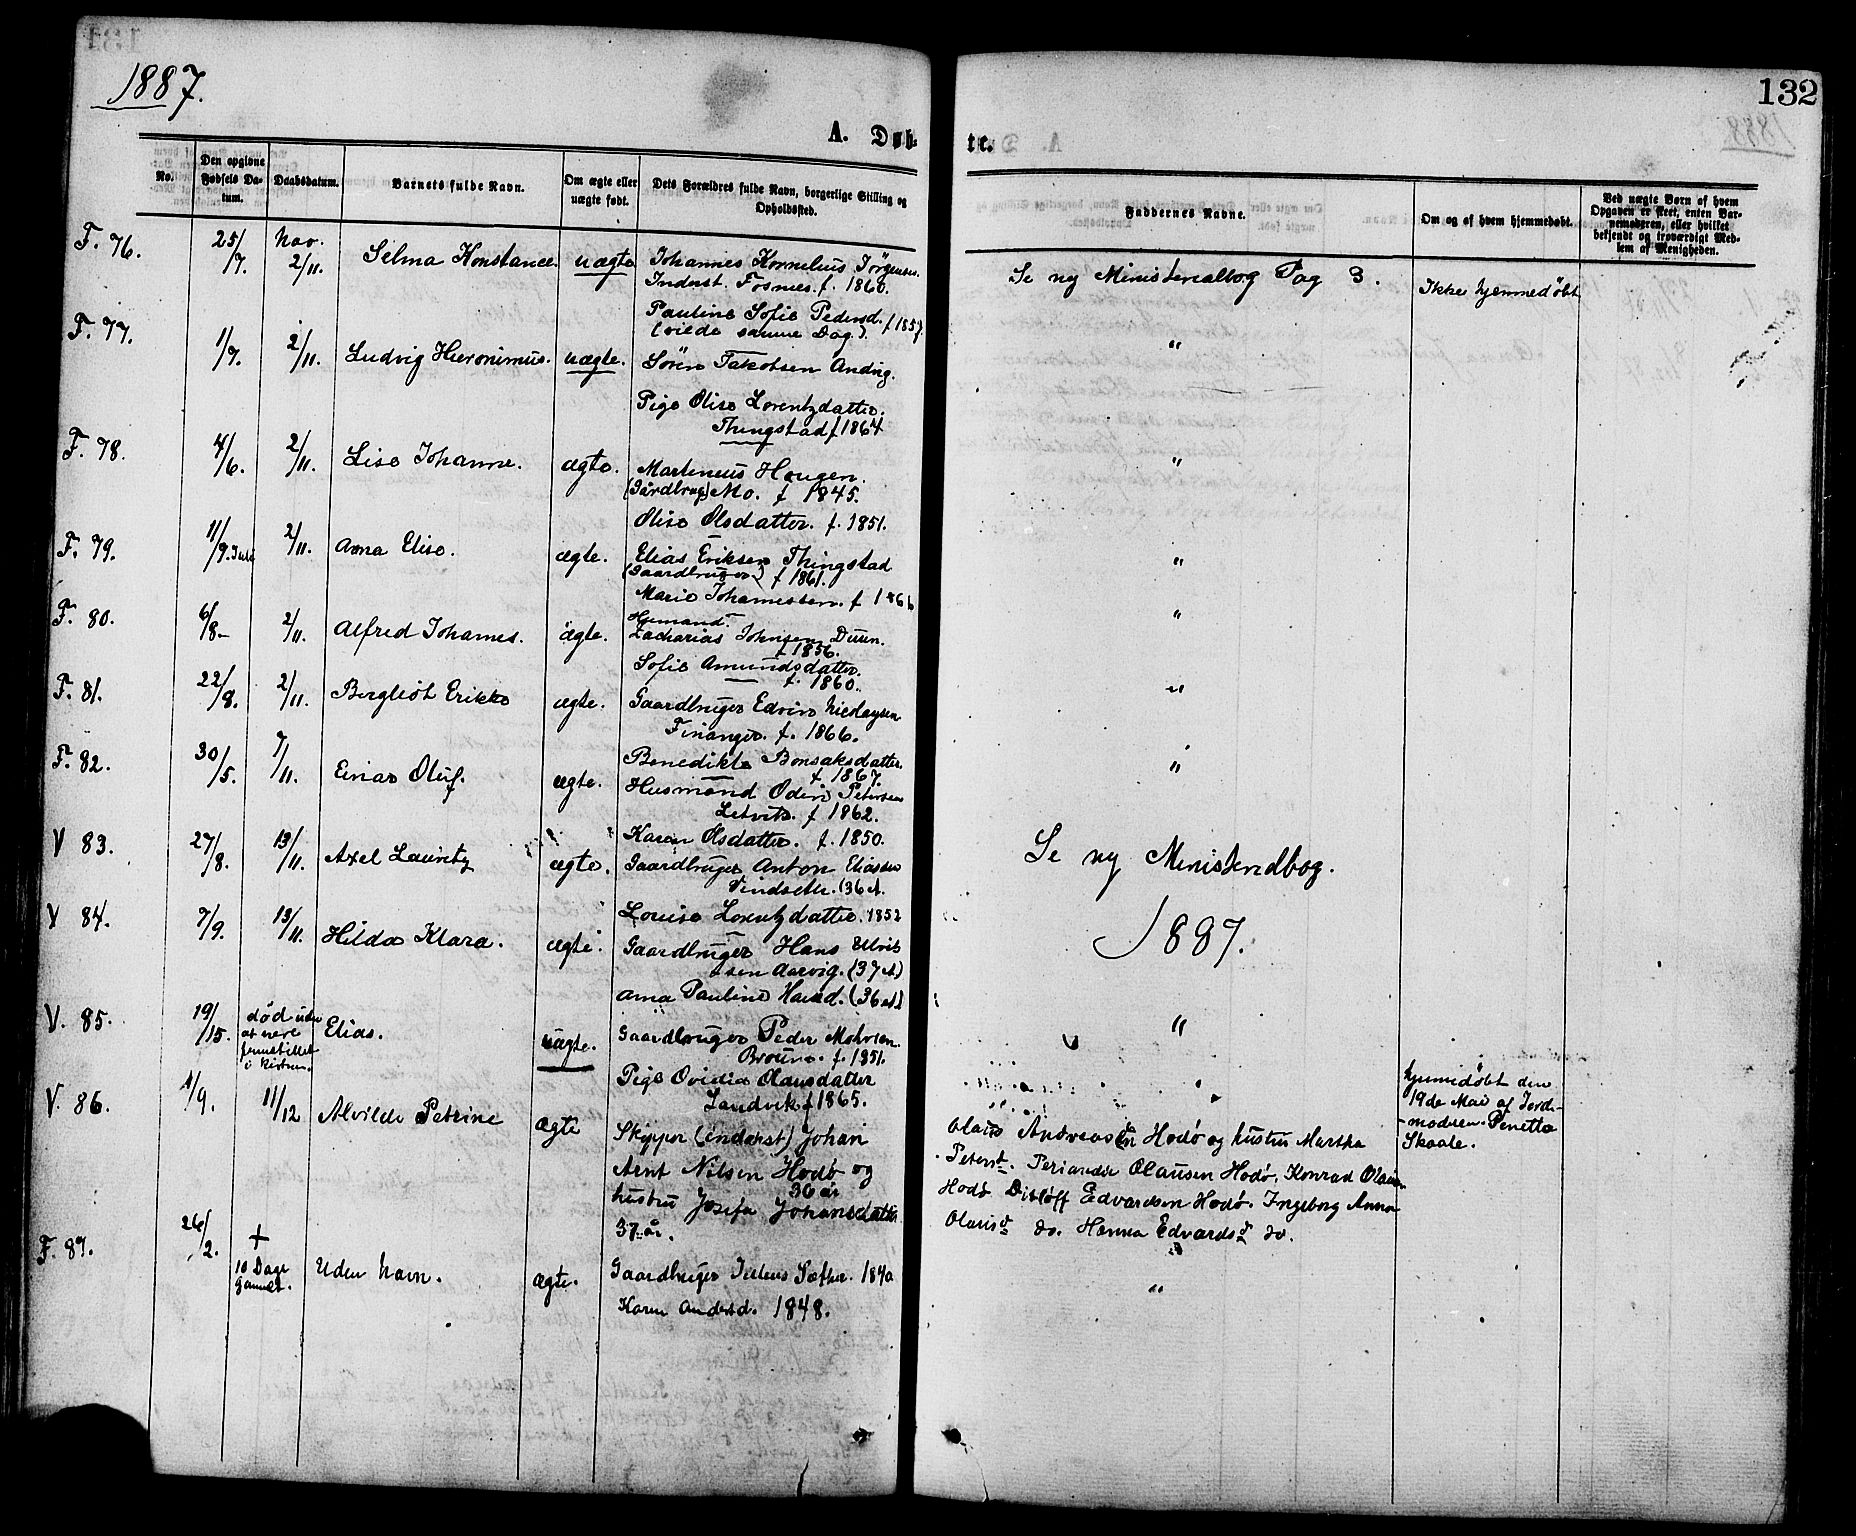 1887.
132
A. Døb-
te.
No.
Den opgivne Fødsels Datum.
Daabsdatum.
Barnets fulde Navn.
Om ægte eller uægte født.
Dets Forældres fulde Navn, borgerlige Stilling og Opholdssted.
Faddernes Navne.
Om og af hvem hjemmedøbt.
Ved uægte Børn af hvem Opgaven er skeet, enten Barnemoderen, eller hvilket bekjendt og troværdigt Medlem af Menigheden.
F. 76. 25/7. Nov. 2/11. Selma Konstance. uægte Johannes Kornelius Jørgensen.
Inderst. Fosnes. f. 1860.
Pauline Sofie Pedersd. f 1857.
(viede samme Dag).
Se ny Ministerialbog Pag 3. Ikke hjemmedøbt
F. 77. 1/7. 2/11. Ludvig Hieronimus. uægte. Sören Jakobsen Andvig.
Pige Olise Lorentzdatter.
Thingstad f 1864
"
F. 78. 4/6. 2/11. Lise Johanne. ægte. Martenius Hougen.
(Gårdbrug) Mo. f 1845.
Olise Olsdatter. f. 1851.
"
F. 79. 11/9. 2/11. Anna Elise. ægte. Elias Eriksen Thingstad
(Gaardbruger) f 1861.
Marie Johannessen. f 1866
"
F. 80. 6/8- 2/11. Alfred Johannes. ægte. Husmand.
Zacharias Johnsen Duun.
f 1856.
Sofie Amundsdatter.
f. 1860.
"
F. 81. 22/8. 2/11. Bergliot Erikke ægte. Gaardbruger Edvin Nicolaysen
Finanger. f. 1866.
Benedikte Bonsaksdatter.
f 1867.
"
F. 82. 30/5. 7/11. Einar Oluf. ægte. Husmand Odin Petersen
Letvik. f 1862.
Karen Olsdatter. f. 1850.
"
V 83. 27/8. 13/11. Axel Lauritz ægte. Gaardbruger Anton Eliassen
Vindseth. (36 A.
Louise Lorentzdatter. 1852
Se ny Ministerialbog.
1887.
V 84. 7/9. 13/11. Hilda Klara. ægte. Gaardbruger Hans Ellrik
sen Aarvig. (37 A)
Anna Pauline Hansd. (36 A.)
V. 85. 19/15. død uden
at være
fremstillet
i kirken. Elias. uægte. Gaardbruger Peder
Broum. f. 1851.
Pige Ovidia Olausdatter
Sandvik f 1865.
"
hjemmedøbt den
19de Mai af Jorde-
-moderen. Penetta
Skaale.
V. 86. 1/9. 11/12 Alvilde Petrine ægte Skipper (inderst) Johan
Arnt Nilsen Hodø og
36 år
hustru Josefa Johansdatter
37 år.
Olaus Andreassen Hodø og hustru Martha
Petersd. Periander Olausen Hodø, Konrad Olausen
Hodø Ditløff Edvardsen Hodø. Ingeborg Anna
Olausd do. Hanna Edvardsd do.
F. 87. 26/2. +
10 Dage
Gammel. Uden Navn. ægte. Gaardbruger Julius Sæther. 1840
Karen Andersd. 1848.
"